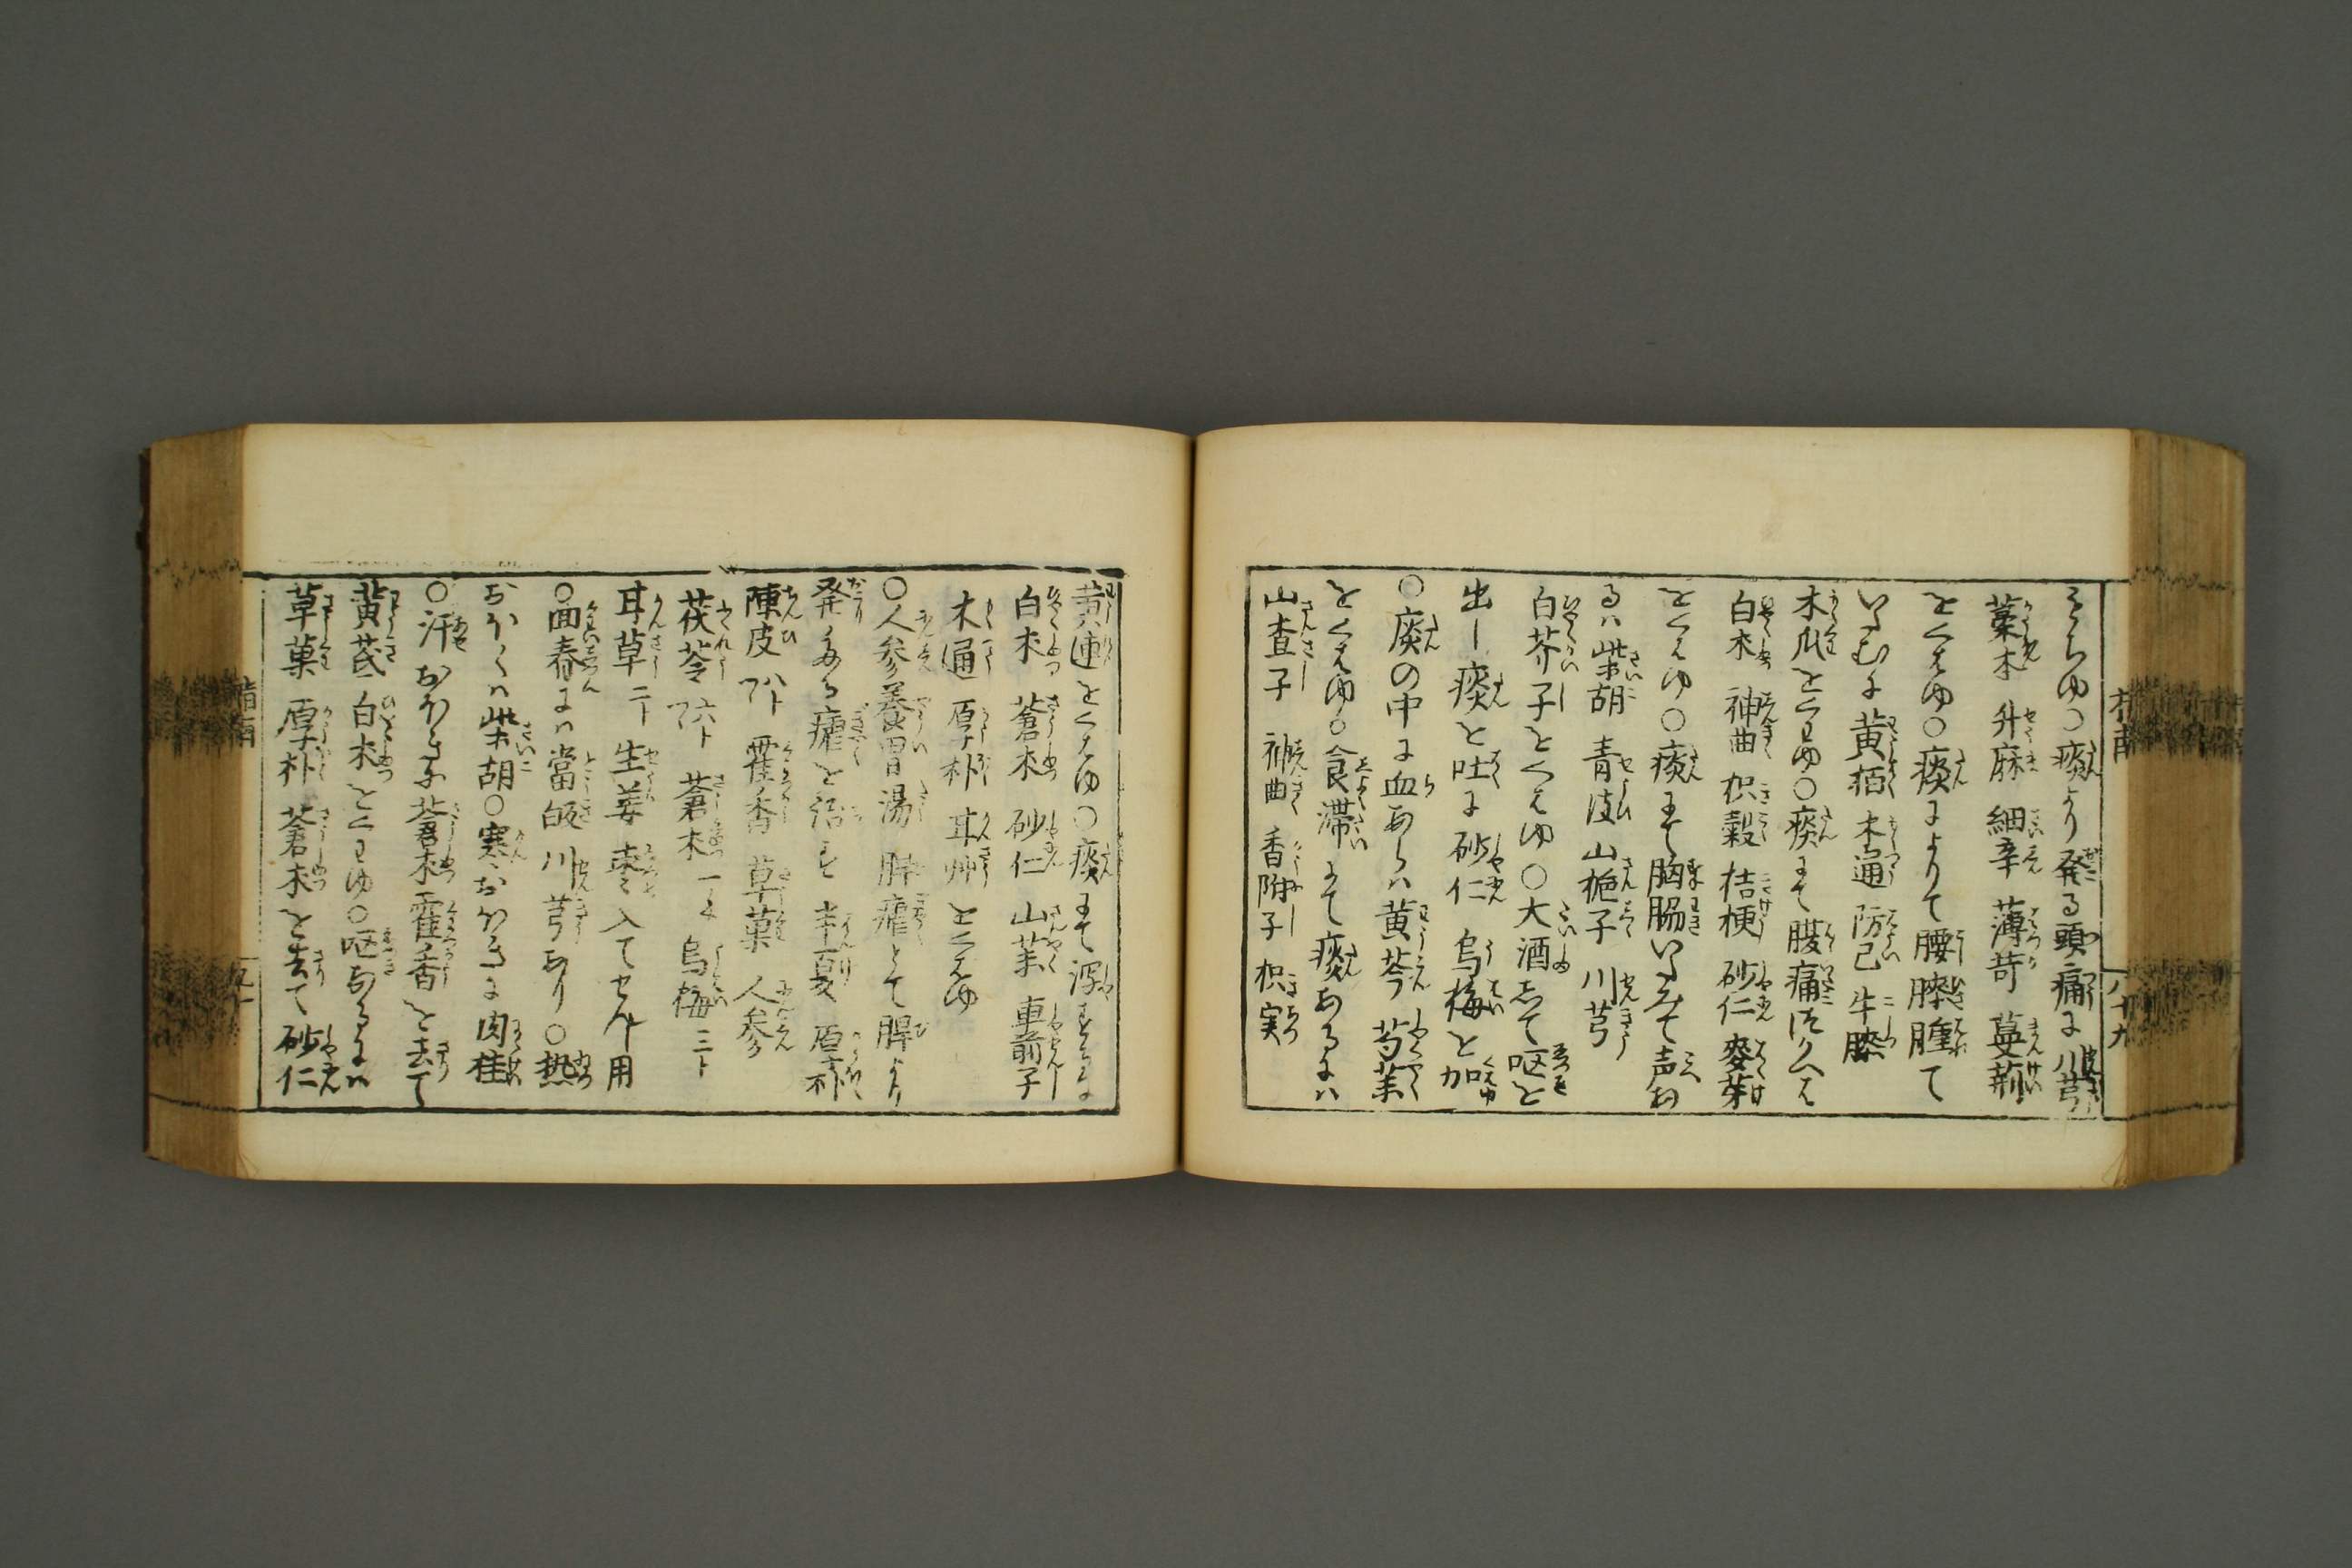 ゆ○痰より発る頭痛に川芎
藁本 升麻 細辛 薄荷 蔓荊
とくはゆ○痰によりて腰膝腫て
いたむに黄栢 木通 防己 牛膝
木瓜とくわゆ○痰にて腹痛
白朮 神曲 枳穀 桔梗 砂仁 麥芽
とくはゆ○痰にて胸脇いたみて声お
るハ柴胡 青皮 山梔子 川芎
白芥子とくはゆ○大酒して嘔と
出し痰と吐に砂仁 烏梅と加
○痰の中に血あらハ黄芩 芍薬
とくはゆ○食滞にて痰あるにハ
山査子 神曲 香附子 枳実
八十九
黄連とくはゆ○痰にて瀉
白朮 蒼朮 砂仁 山薬 車前子
木通 厚朴 甘艸とくはゆ
○人参養胃湯 脾瘧とて脾より
発たる瘧と治す 半夏 厚朴
陳皮 藿香 草菓 人参
茯苓 蒼朮 烏梅
甘草 生姜 棗入てせん用
○面春にハ當皈 川芎あり○熱
おほくハ柴胡○寒おほきに肉桂
○汗おほきに蒼朮 藿香と去て
黄茋 白朮とくわゆ○嘔あるにハ
草菓 厚朴 蒼朮と去て 砂仁
指南